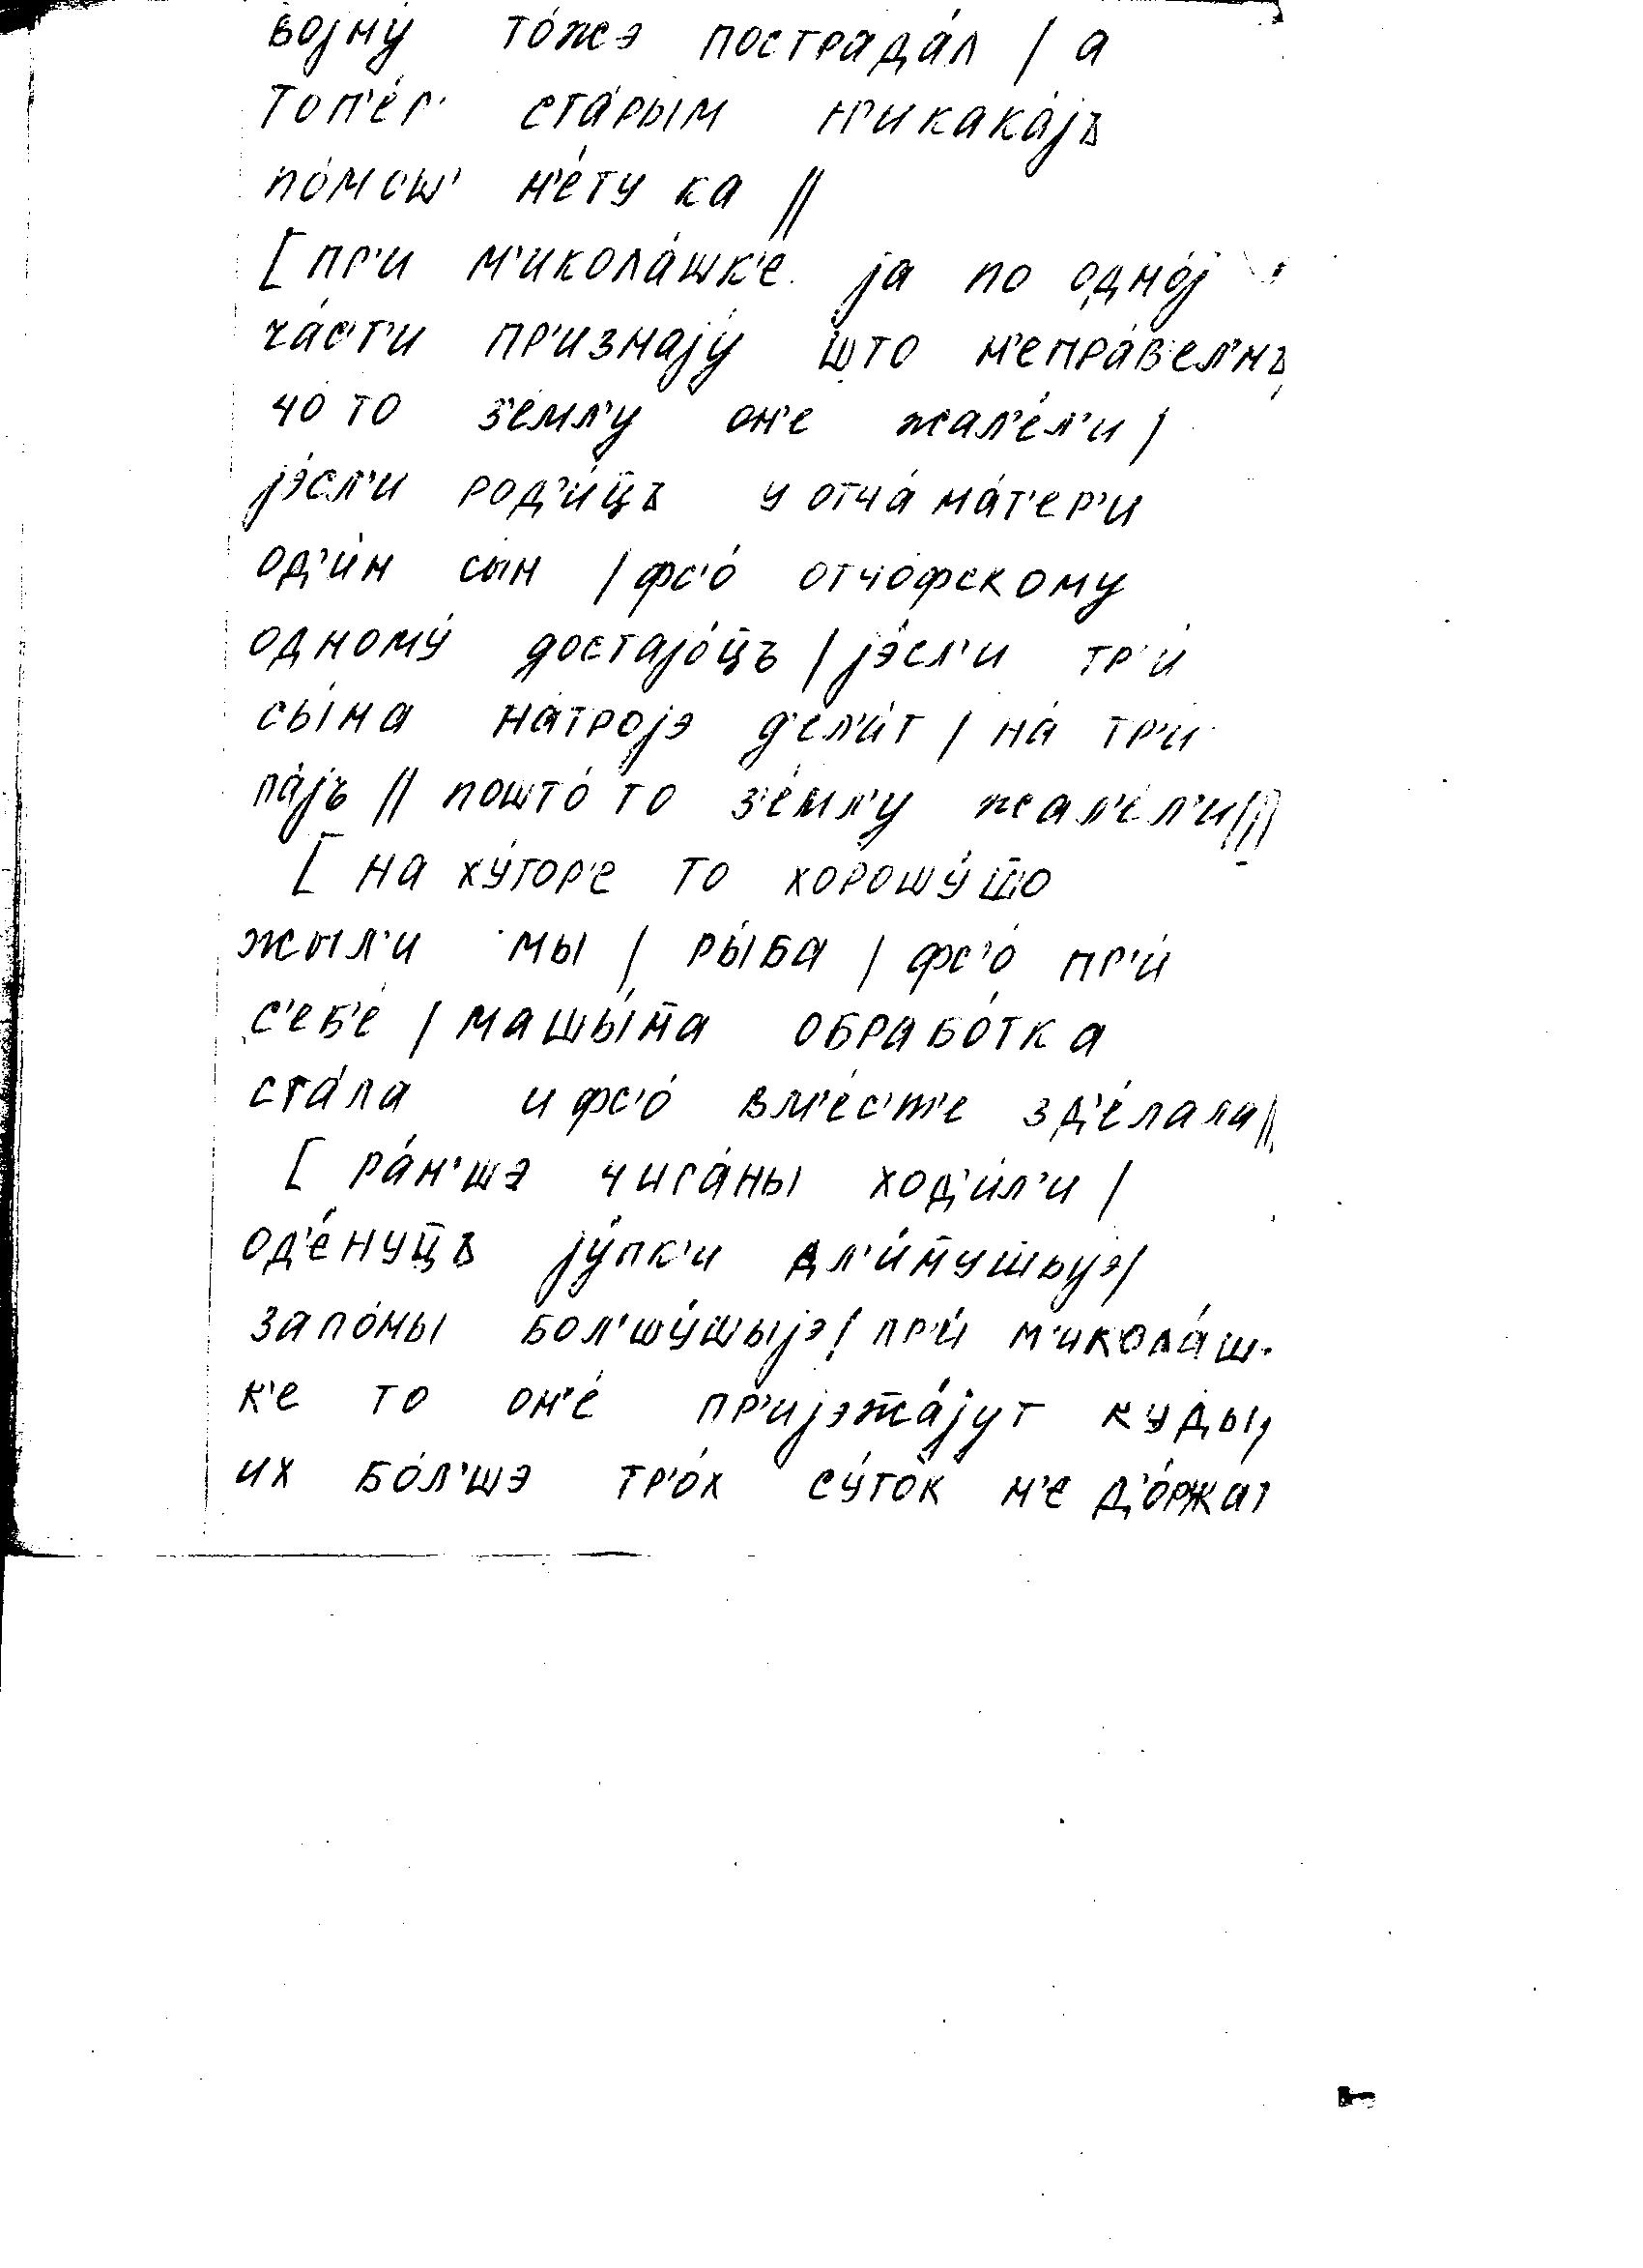 војну́ то́жэ пострада́л / а
топ'е́р' ста́рым н'икака́јъ
по́мош' н'е́ту ка //
[ пр'и м'икола́шк'е ја по одно́ј
ча́с'т'и пр'изнају́ што н'епра́в'ел'нъ
чо то з'е́мл'у он'е жал'е́л'и /
јэ́сл'и род'и́ц̄ъ у отча́ ма́т'ер'и
од'и́н сы́н / фс'о́ отчо́фскому
одному́ достајо́ц̄ъ / јэ́сл'и тр'и́
сы́на на́тројэ д'ел'и́т / на́ тр'и
па́јъ // пошто́ то з'е́мл'у жал'е́л'и ///
[ на ху́тор'е то хорошу́ш̄о
жыл'и мы / ры́ба / фс'о́ пр'и́
с'еб'е́ / машы́н̄а обрабо́тка
ста́ла и фс'о́ вм'е́с'т'е зд'е́лала //
[ ра́н'шэ чига́ны ход'и́л'и /
од'е́нуц̄ъ ју́пк'и дл'и́н̄ушыјэ /
запо́ны бол'шу́шыјэ / пр'и́ м'икола́ш-
к'е то он'е́ пр'ијэж̄а́јут куды́,
их бо́л'шэ тр'о́х су́ток н'е д'о́ржат